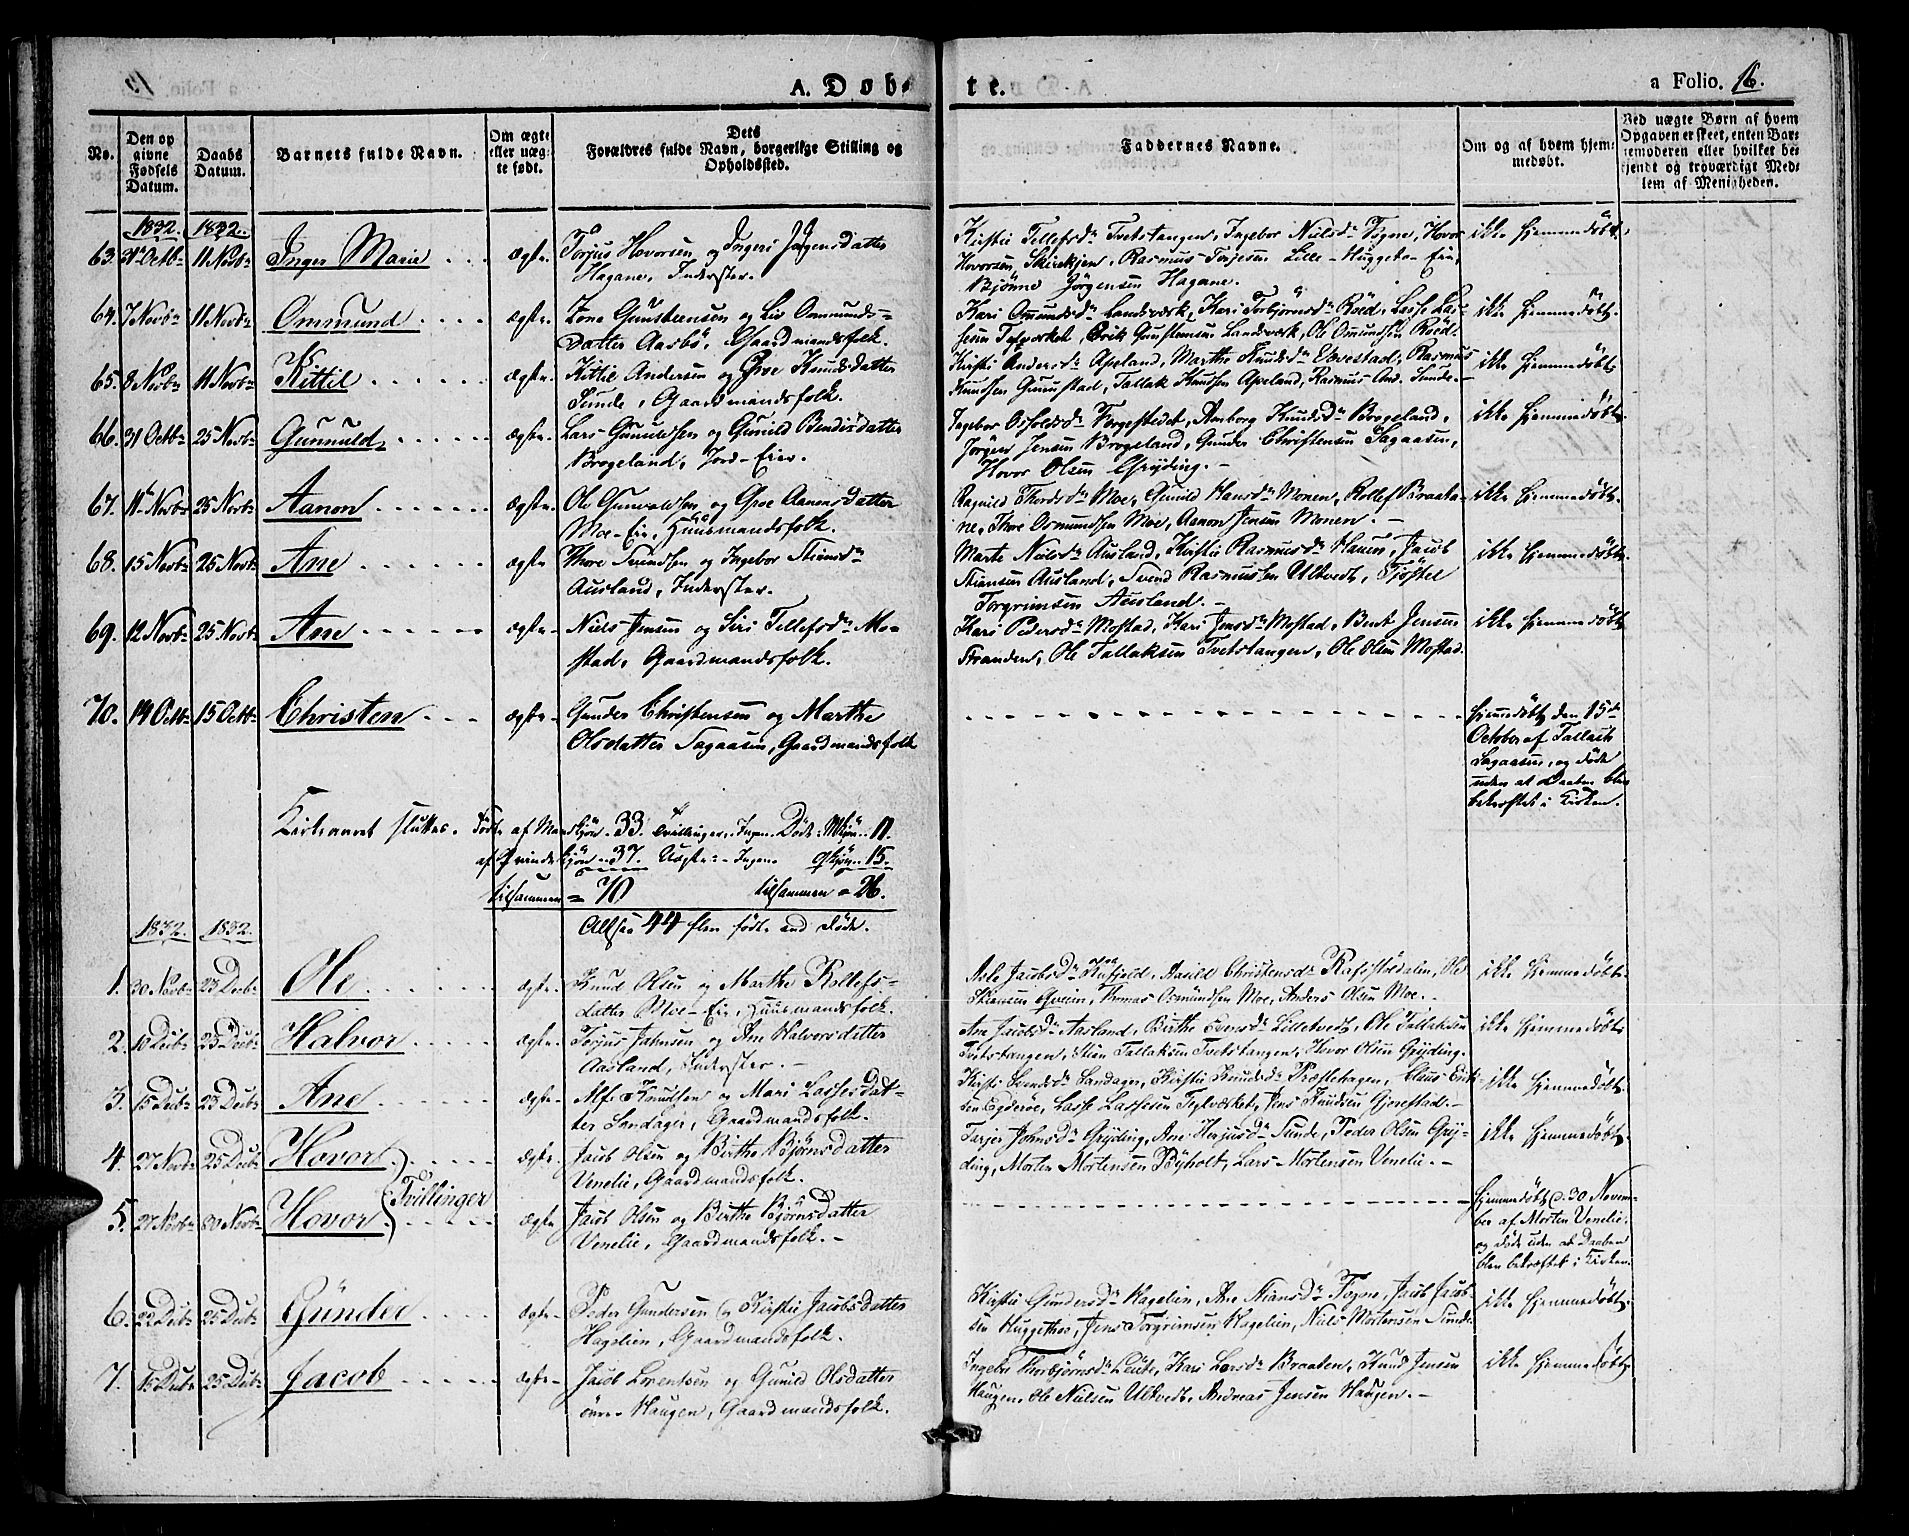 A. Døbte.
a Folio. 16.
No.
Den opgivne Fødsels Datum.
Daabs Datum.
Barnets fulde Navn.
Om ægte eller uægte født.
Dets Forældres fulde Navn, borgerlige Stilling og Opholdssted.
Faddernes Navne.
Om og af hvem hjemmedøbt.
Ved uægte Børn af hvem Opgaven er skeet, enten Barnemoderen eller hvilket bekjendt og troværdigt Medlem af Menigheden.
1832. 1832.
63. Octbr 11 Novbr Inger Marie ægte. Torjus Hovorsen og Ingeri Jørgensdatter
Hagane, Inderster.
Kirsti Tellefsdr Tvetstangen, Ingebor Nielsdr Fogne, Hovor
Hovorsen, Rasmus Torjesen Lille-Huggeto-Eie,
Bjönne Jörgensen Hagane.
ikke hjemmedöbt.
64. 7 Novbr 11 Novbr Ommund ægte. Gunsteensen og Liv Ommunds-
datter Aasbö, Gaardmandsfolk.
Kari Omundsdr Landsverk, Kari Torbjörnsdr Röed, Lasse Las-
sesen Teglverket, Erik Gunstensen Landsverk, Ole Omundsen Röed.
ikke hjemmedöbt.
65. 8 Novbr 11 Novbr Kittil ægte. Kittil Andersen og Groe Knudsdatter
Sunde, Gaardmandsfolk.
Kirsti Andersdr Apeland, Marthe Knudsdr Ebvestad, Rasmus
Knudsen Gunnstad, Tallak Knudsen Apeland, Rasmus And. Sunde.
ikke hjemmedöbt.
66. 31 Octbr 25 Novbr Gunnuld ægte. Lars Gunuldsen og Gunild Bendixdatter
Brogeland, Jord-Eier.
Ingebor Osfoldsdr Torgestedet, Amborg Knudsdr Brogeland,
Jörgen Jensen Brogeland, Gunder Christensen Sagaasen,
Hovor Olsen Gryding.
ikke hjemmedöbt.
67. 11te Novbr 25 Novbr Aanon ægte. Ole Gunvaldsen og Groe Aanonsdatter
Moe-Eie, Huusmandsfolk.
Ragnild Thordsdr Moe, Gunild Hansdr Monen, Rollef Braata-
ne, Thore Osmundsen Moe, Aanon Jensen Monen.
ikke hjemmedöbt.
68. 15 Novbr 25 Novbr Ane ægte. Thore Svendsen og Ingebor Stiansdr
Ausland, Inderster.
Marte Nielsdr Ausland, Kirstie Rasmusdr Hauen, Jacob
Stiansen Ausland, Svend Rasmussen Ulltvedt, Tjöstel
Torgrimsen Ausland.
ikke hjemmedöbt.
69. 12 Novbr 25 Novbr Ane ægte. Niels Jensen og Siri Tellefsdr Mo-
stad, Gaardmandsfolk.
Kari Pedersdr Mostad, Kari Jensdr Mostad, Bent Jensen
Stranden, Ole Tallaksen Tvetstangen, Ole Olsen Mostad.
ikke hjemmedöbt.
70. 14 Octbr 15 Octbr Christen ægte. Gunder Christensen og Marthe
Olsdatter Sagaasen, Gaardmandsfolk
hjemmedöbt den 15de
October af Tallach
Sagaasen, og döde
uden at Daaben blev
bekræftet i Kirken.
Kirkeaaret sluttes. Fødte af Mandkjön 33. Tvillinger, Ingen. Döde: Mkjön.. 11.
af Qvindekjön.. 37. Uægte - Ingen. Qkjön.. 15.
tilsammen = 70 tilsammen = 26.
Altsaa 44 flere födte end döde.
1832. 1832.
1. 30 Novbr 23 Decbr Ole ægte. Knud Olsen og Marthe Rollefs-
datter Moe-Eie, Huusmandsfolk.
Asle Jacobsdr Aasild Christensdr Ole
Stiansen Qveim, Thomas Osmundsen Moe, Anders Olsen Moe.
ikke hjemmedöbt.
2. 10 Decbr 23 Decbr Halvor ægte. Torjus Jahnsen og Ane Halvorsdatter
Aasland, Inderster.
Ane Jacobsdr Aasland, Birthe Evensdr Lilletvedt, Ole Tallaksen
Tvetstangen, Stian Tallaksen Tvetstangen, Hovor Olsen Gryding.
ikke hjemmedöbt
3. 15 Decbr 23 Decbr Ane ægte. Alf Knudsen og Mari Lassesdat-
ter Sandager, Gaardmandsfolk.
Kirsti Sandager, Kirstie Knudsdr Præstehagen, Claus Erik-
sen Egderöe, Lasse Lassesen Teglverket, Jens Knudsen Gjerestad.
ikke hjemmedöbt.
4. 27 Novbr 25 Decbr Hovor ægte. Jacob Olsen og Birthe Björnsdatter
Venelie, Gaardmandsfolk.
Tarjer Johnsdr Gryding, Ane Herjusdr Sunde, Peder Olsen Gry-
ding, Morten Mortensen Byholt, Lars Mortensen Venelie.
ikke hjemmedöbt.
Tvillinger
5. 27 Novbr 30 Novbr Hovor ægte. Jacob Olsen og Birthe Björnsdatter
Venelie, Gaardmandsfolk.
hjemmedöbt d. 30 Novem-
ber af Morten Venelie,
og döde uden at Daaben
blev bekræftet i Kirken.
6. 22 Decbr 25 Decbr Günder ægte. Peder Gundersen og Kirstie Jacobsdatter
Hagelien, Gaardmandsfolk.
Kirstie Gundersdr Hagelien, Ane Stiansdr Fogne, Jacob Jacob-
sen Huggethoe, Jens Torgrimsen Hagelien, Niels Mortensen Sunde.
ikke hjemmedöbt.
7. 15 Decbr 25 Decbr Jacob ægte. Jacob Lorentsen og Gunild Olsdatter
övre Haugen, Gaardmandsfolk.
Ingebr Thorbjörnsdr Kari Larsdr Braaten, Knud Jensen
Haugen, Ole Nielsen Ulltvedt, Andreas Jensen Haugen.
ikke hjemmedöbt.